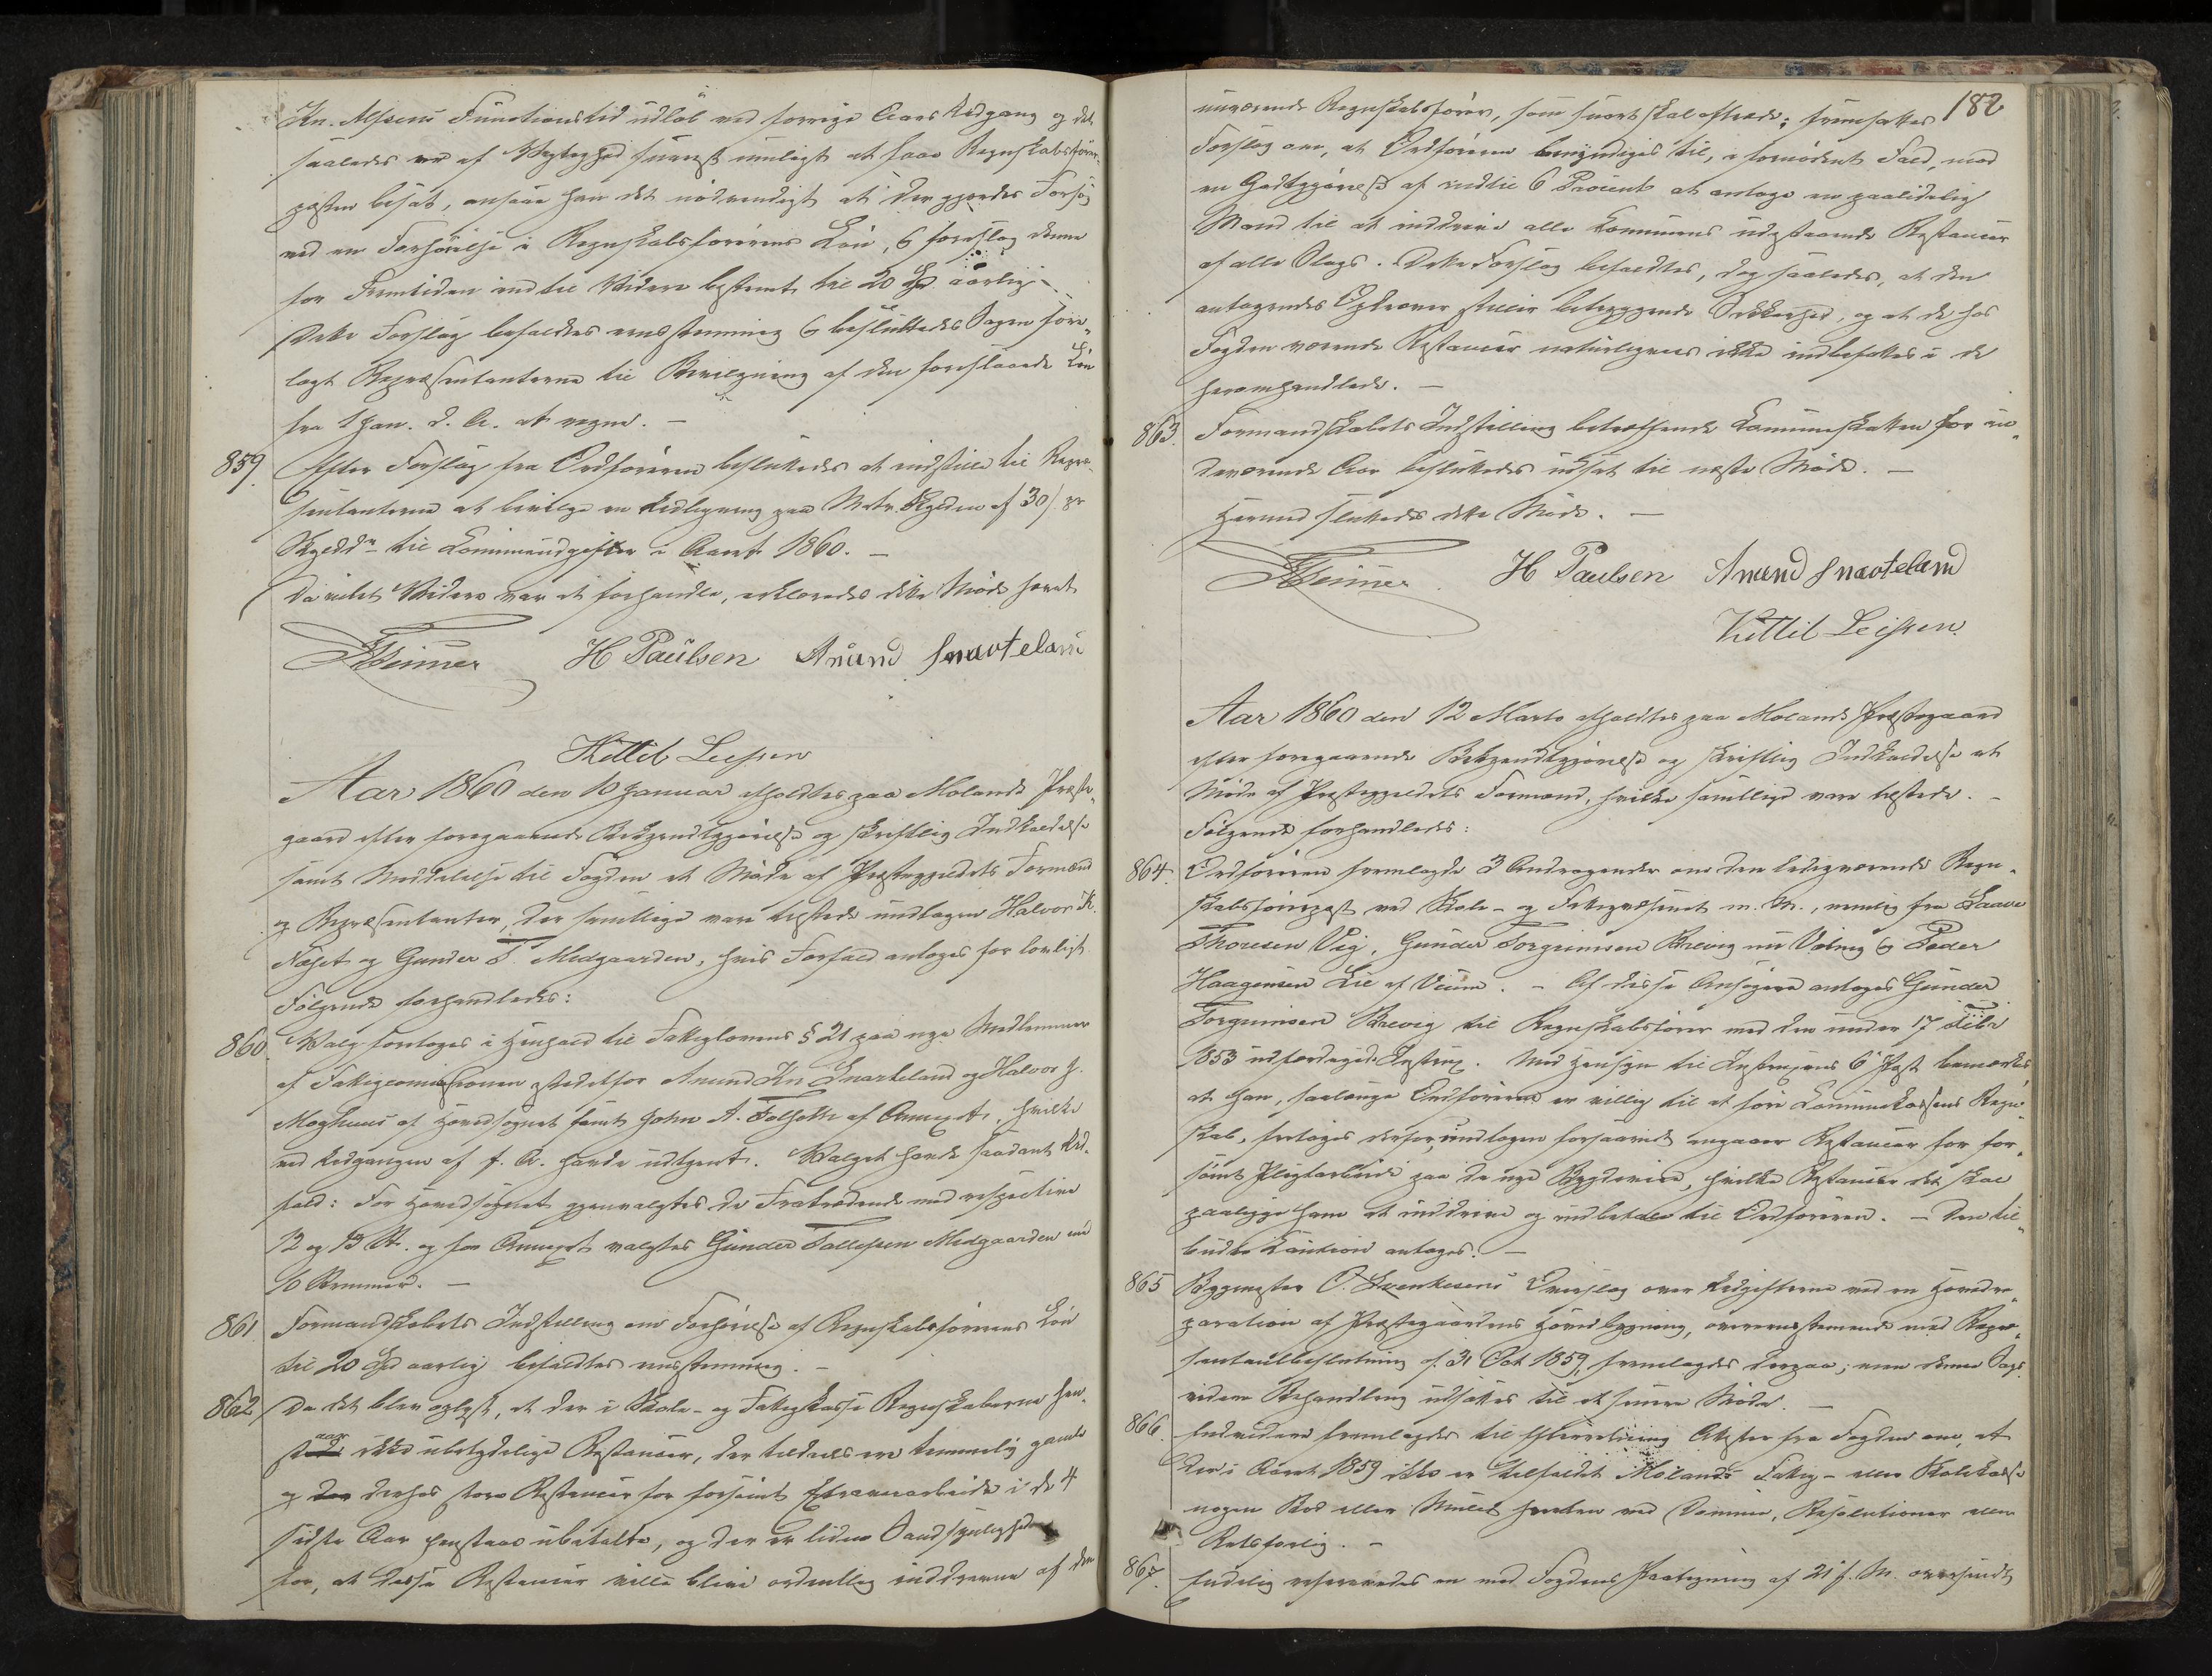 Kn. Messens Functionstid udløb ved forrige Aars Udgang og det
saaledes er af Vigtighed snarest muligt at faae Regnskabsfører-
posten besat, ansaae han det nødvendigt at der gjordes Forsøg
med en Forhøielse i Regnskabsførerens Løn, & foreslog denne
for Fremtiden indtil Videre bestemt til 20 Spd aarlig. –
Dette Forslag bifaldtes eenstemmig & besluttedes Sagen fore-
lagt Repræsentanterne til Bevilgning af den foreslaaede Løn
fra 1 Jan. d. A. at regne. –
859. Efter Forslag fra Ordføreren besluttedes at indstille til Repræ-
sentanterne at bevilge en Udligning paa Matr. Skylden af 30 ß pr
Skylddr til Kommuneudgifter i Aaret 1860. –
Da intet Videre var at forhandle, erklæredes dette Møde hævet
H Paulsen Anund Snarteland
Kittil Leifsen
Aar 1860 den 10 Januar afholdtes paa Molands Præste-
gaard efter foregaaende Bekjendtgjørelse og skriftlig Indkaldelse
samt Meddelelse til Fogden et Møde af Præstegjeldets Formænd
og Repræsentanter, der samtlige vare tilstede undtagen Halvor K.
Næset og Gunder T. Midgaarden, hvis Forfald antoges for lovligt
Følgende forhandledes:
860. Valg foretoges i Henhold til Fattiglovens § 21 paa nye Medlemmer
af Fattigcommissionen istedetfor Anund Kn. Snarteland og Halvor J.
Moghuus af Hovedsognet samt John A. Folseth af Annexet, hvilke
ved Udgangen af f. A. havde udtjent. Valget havde saadant Ud-
fald: For Hovedsognet gjenvalgtes de Fratrædende med respective
12 og 13 St. og for Annexet valgtes Gunder Tallefsen Midgaarden med
10 Stemmer. –
861 Formandskabets Indstilling om Forhøielse af Regnskabsførerens Løn
til 20 Spd aarlig bifaldtes eenstemmig. –
862. Da det blev oplyst, at der i Skole- og Fattigkasse Regnskaberne hen-
staar ikke ubetydelige Restancer, der tildeels ere temmelig gamle
og derhos store Restancer for forsømt Efternarbeide i de 4
sidste Aar henstaae ubetalte, og der er liden Sandsynlighed
for, at disse Restancer ville blive ordentlig inddrevne af den
182
nuværende Regnskabsfører, som snart skal aftræde; fremsattes
Forslag om, at Ordføreren bemyndiges til, i fornødent Fald, mod
en Godtgjørelse af indtil 6 Procent at antage en paalidelig
Mand til at inddrive alle Kommunens udestaaende Restancer
af alle Slags. Dette Forslag bifaldtes, dog saaledes, at den
antagendes Opkræver stiller betryggende Sikkerhed, og at de hos
Fogden værende Restancer naturligviis ikke indbefattes i de
heromhandlede. –
863. Formandskabets Indstilling betræffende Kommuneskatten for in-
deværende Aar besluttedes udsat til næste Møde. –
Hermed sluttedes dette Møde. –
H Paulsen Anund Snarteland
Kittil Leifsen
Aar 1860 den 12 Marts afholdtes paa Molands Præstegaard
efter foregaaende Bekjendtgjørelse og skriftlig Indkaldelse et
Møde af Præstegjeldets Formænd, hvilke samtlige vare tilstede. –
Følgende forhandledes:
864. Ordføreren fremlagde 3 Andragender om den ledigværende Regn-
skabsførerpost ved Skole- og Fattigvæsenet m. M., nemlig fra Saave
Thoresen Vig, Gunder Torgrimsen Brevig nu og Peder
Haagensen Lie af Veum. – Af disse Ansøgere antoges Gunder
Torgrimsen Brevig til Regnskabsfører med den under 17
1853 udfærdigede Instrux. Med Hensyn til Instruxens 6te Post bemærkes
at han, saalænge Ordføreren er villig til at føre Kommunekassens Regn-
skab, fritages derfor, undtagen forsaavidt angaaer Restancer for for-
sømt Pligtarbeide paa de nye Bygdeveie, hvilke Restancer det skal
paaligge ham at inddrive og indbetale til Ordføreren. – Den til-
budte Caution antoges. –
865 Bygmester O. Svenkesens Overslag over Udgifterne ved en Hovedre-
paration af Præstegaardens Hovedbygning, overeensstemmende med Repræ-
sentantbeslutning af 31 Oct 1859, fremlagdes derpaa; men denne Sags
videre Behandling udsattes til et senere Møde. –
866. Endvidere fremlagdes til Efterretning Attester fra Fogden om, at
der i Aaret 1859 ikke er tilfaldet Molands Fattig- eller Skolekasse
nogen Bod eller Mulct hverken ved Domme, Resolutioner eller
Retsforlig. –
867. Endelig refereredes en med Fogdens Paategning af 21 f. M. oversendt